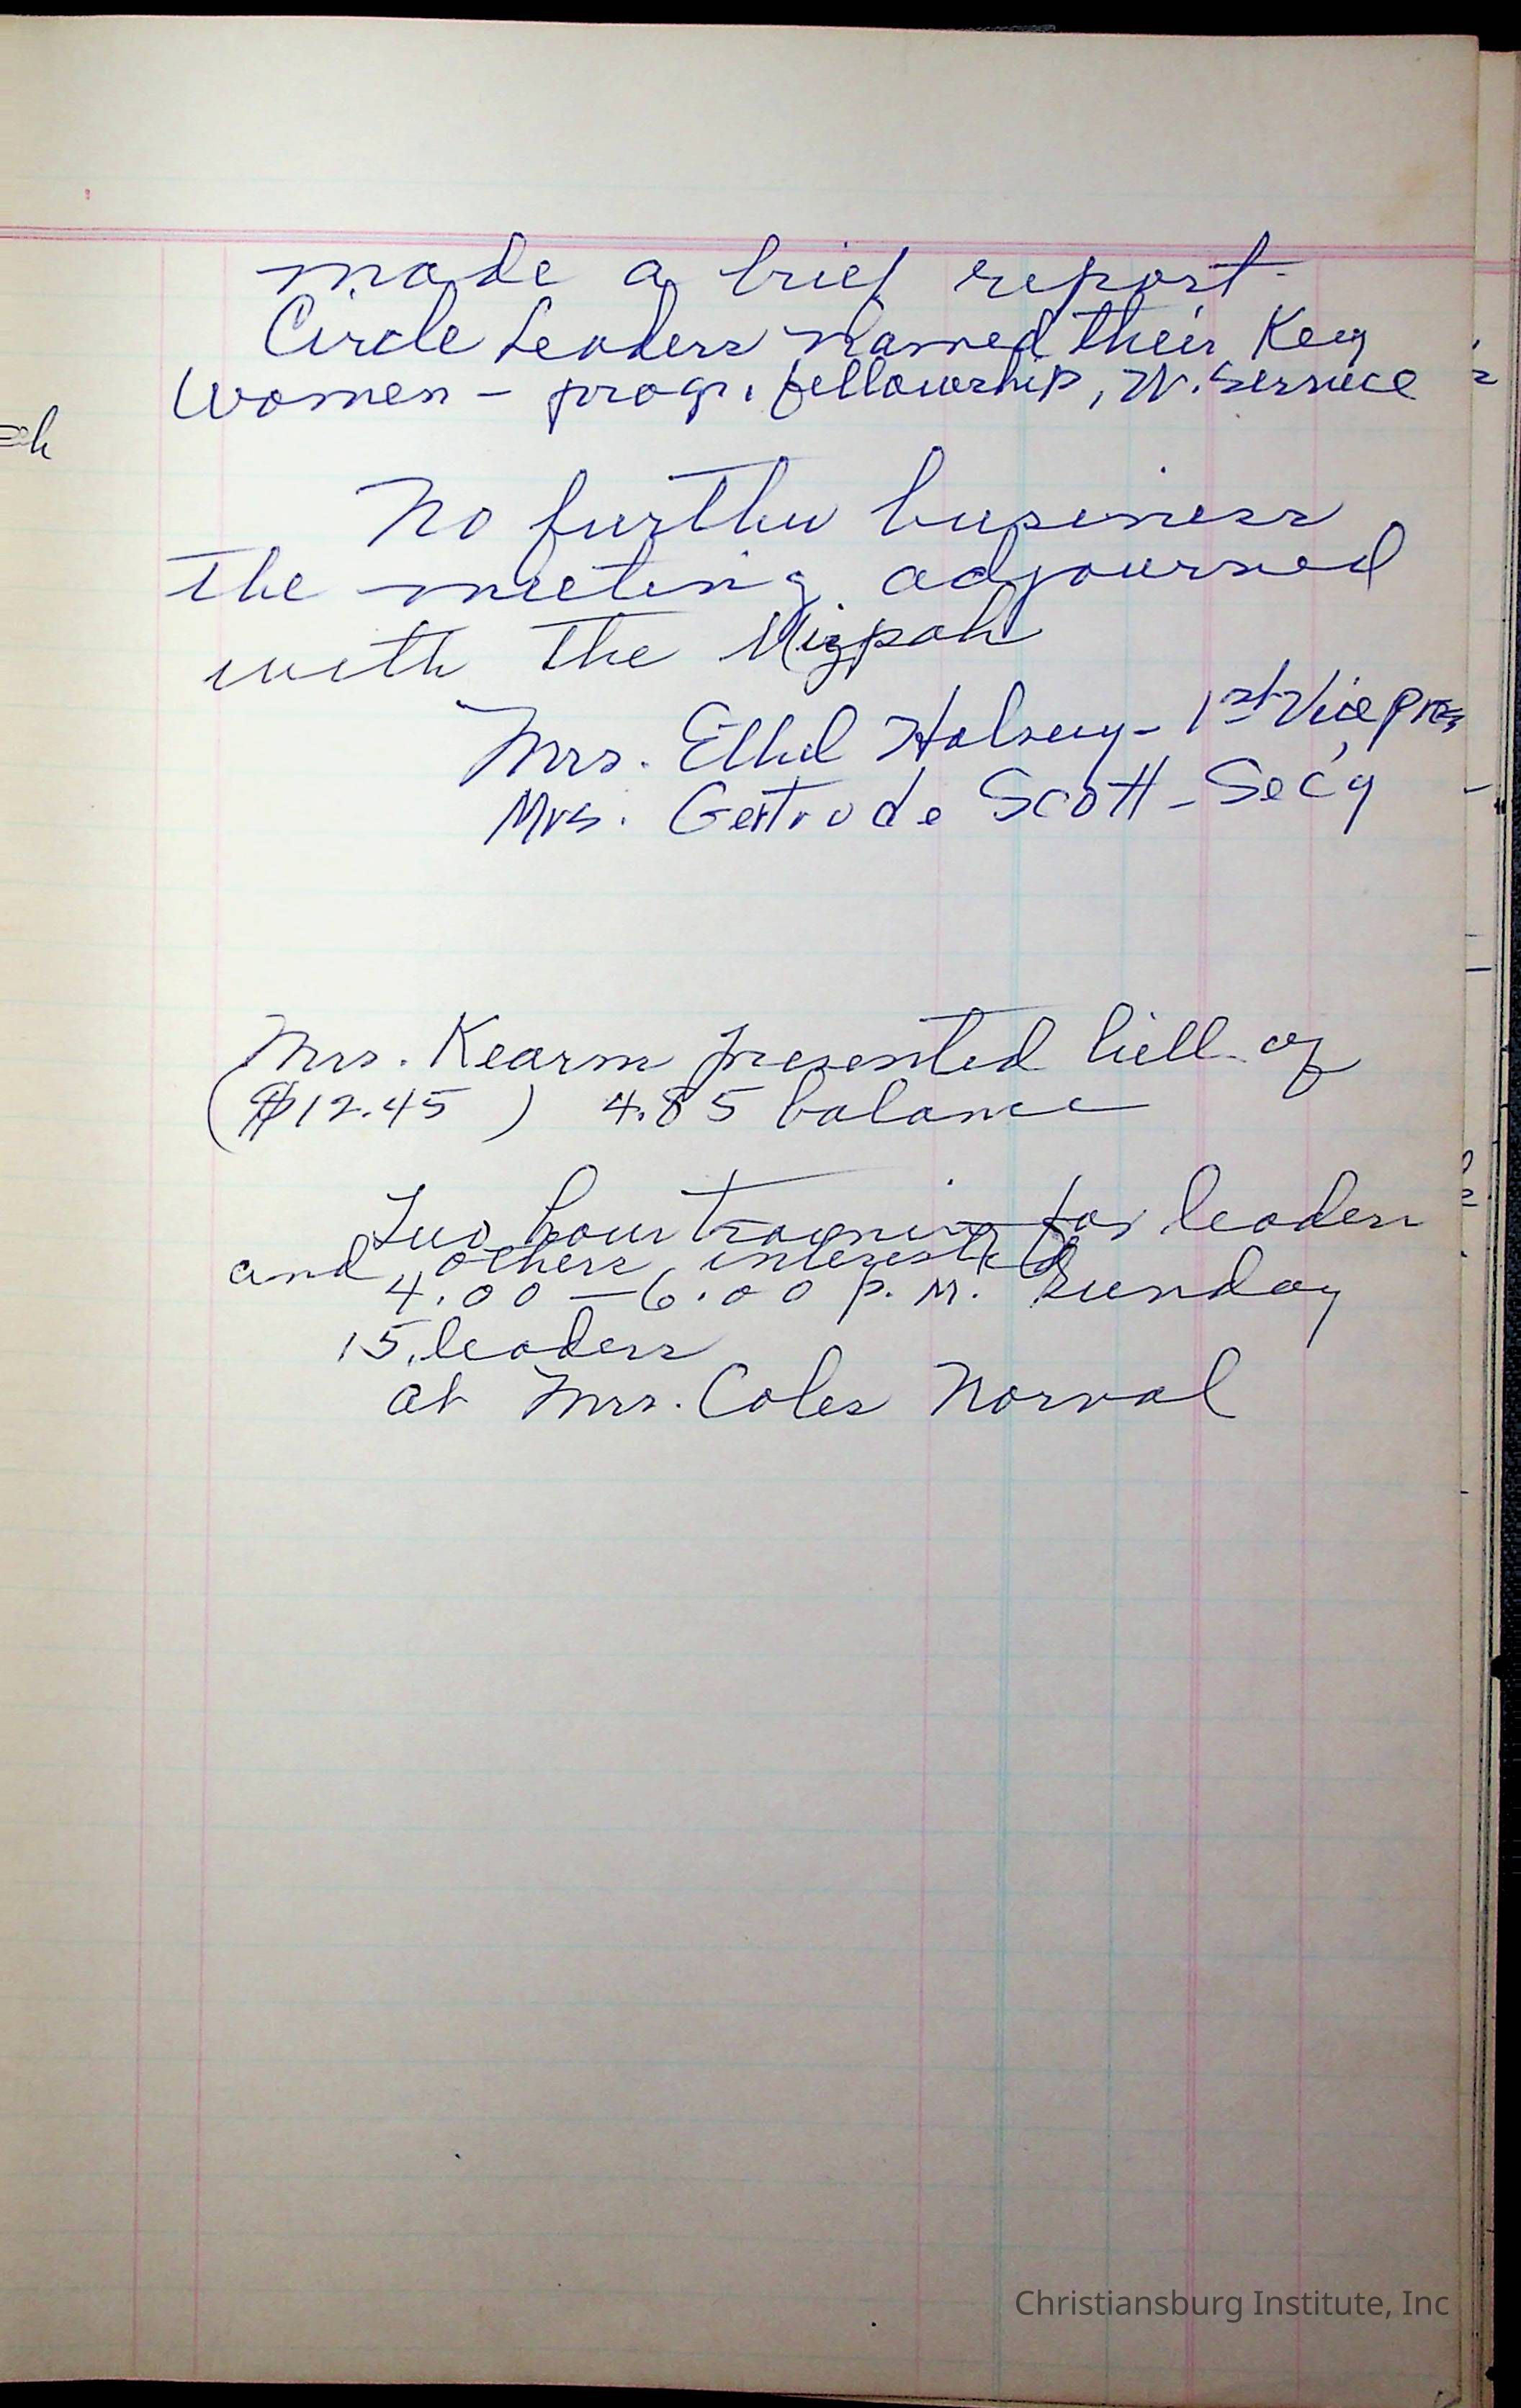 made a brief report.
Circle Leaders named their Key
Women - prog. fellowship, W. Service
No further business
the meeting adjourned
with the Mizpah
Mrs. Ethel Halsey - 1st Vice Pres
Mrs. Gertrude Scott - Sec'y
Mrs. Kearse presented bill of
($12.45) 4.85 balance
Two hour training for leaders
and others interested
4.00 - 6.00 P.M. Sunday
15 leaders
at Mrs. Coles Norval
Christiansburg Institute, Inc